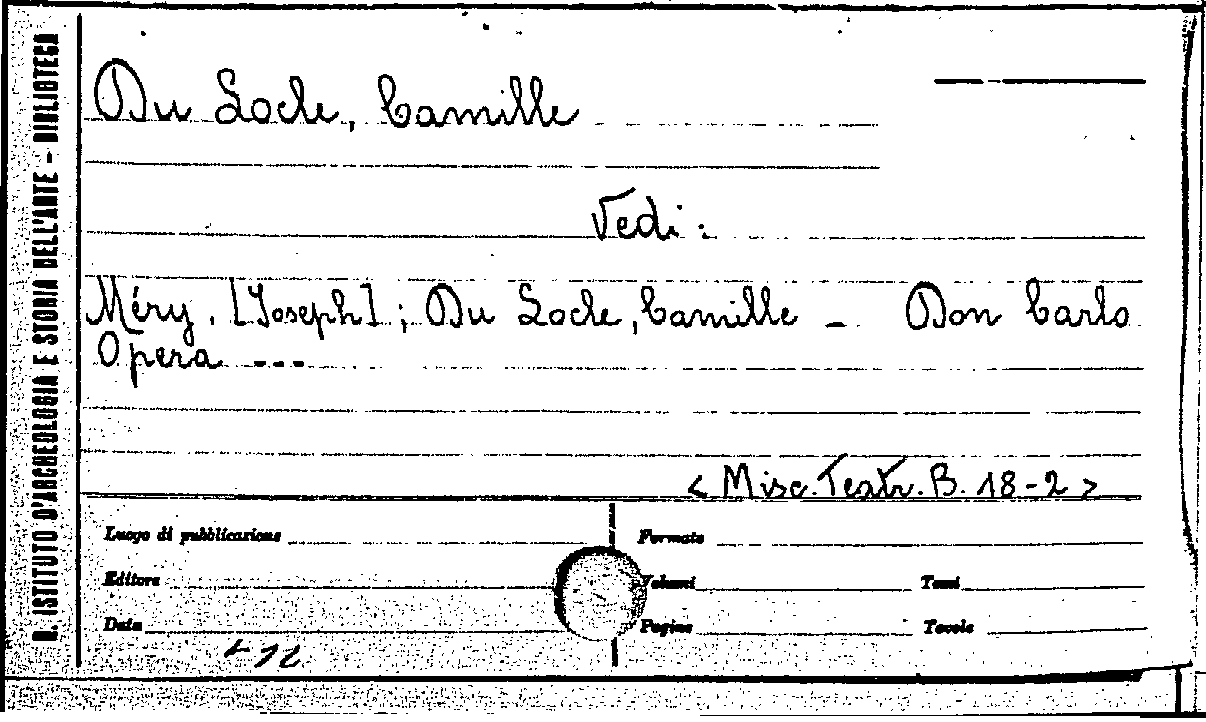 R. ISTITUTO D'ARCHEOLOGIA E STORIA DELL'ARTE - BIBLIOTECA
Du Locle, Camille
Vedi:
Méry, [Joseph]; Du Locle, Camille - Don Carlo
Opera ---
< Misc. Teatr. B. 18-2 >
Luogo di pubblicazione
Formato
Editore
Volumi
Tomi
Data
Pagine
Tavole